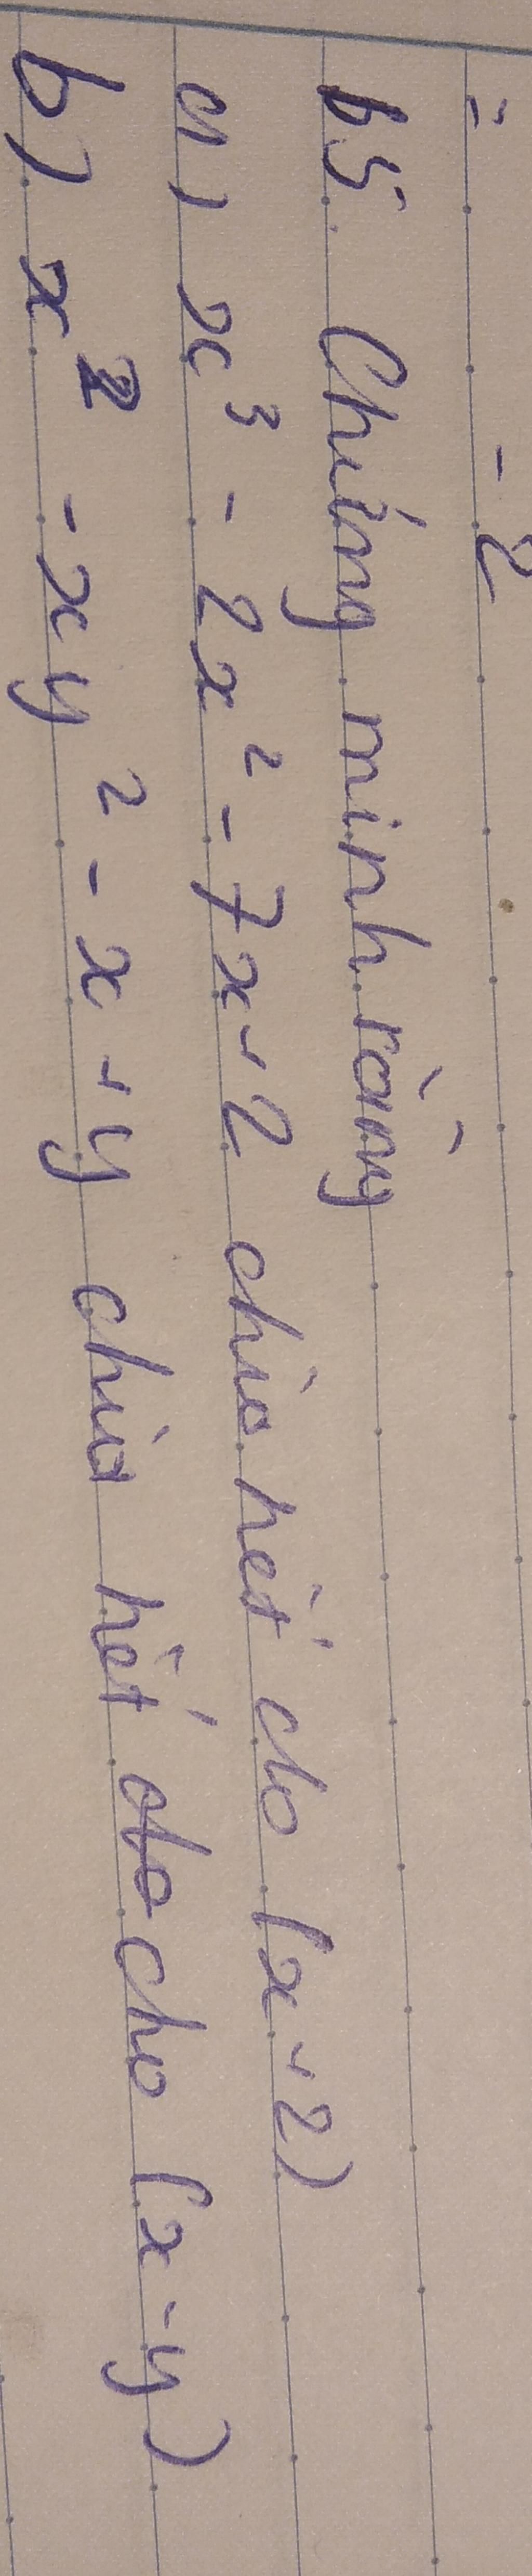 b5. Chứng minh rằng
a) x³ - 2x² - 7x + 2 chia hết cho (x + 2)
b) x² - xy² - x + y chia hết cho (x - y)